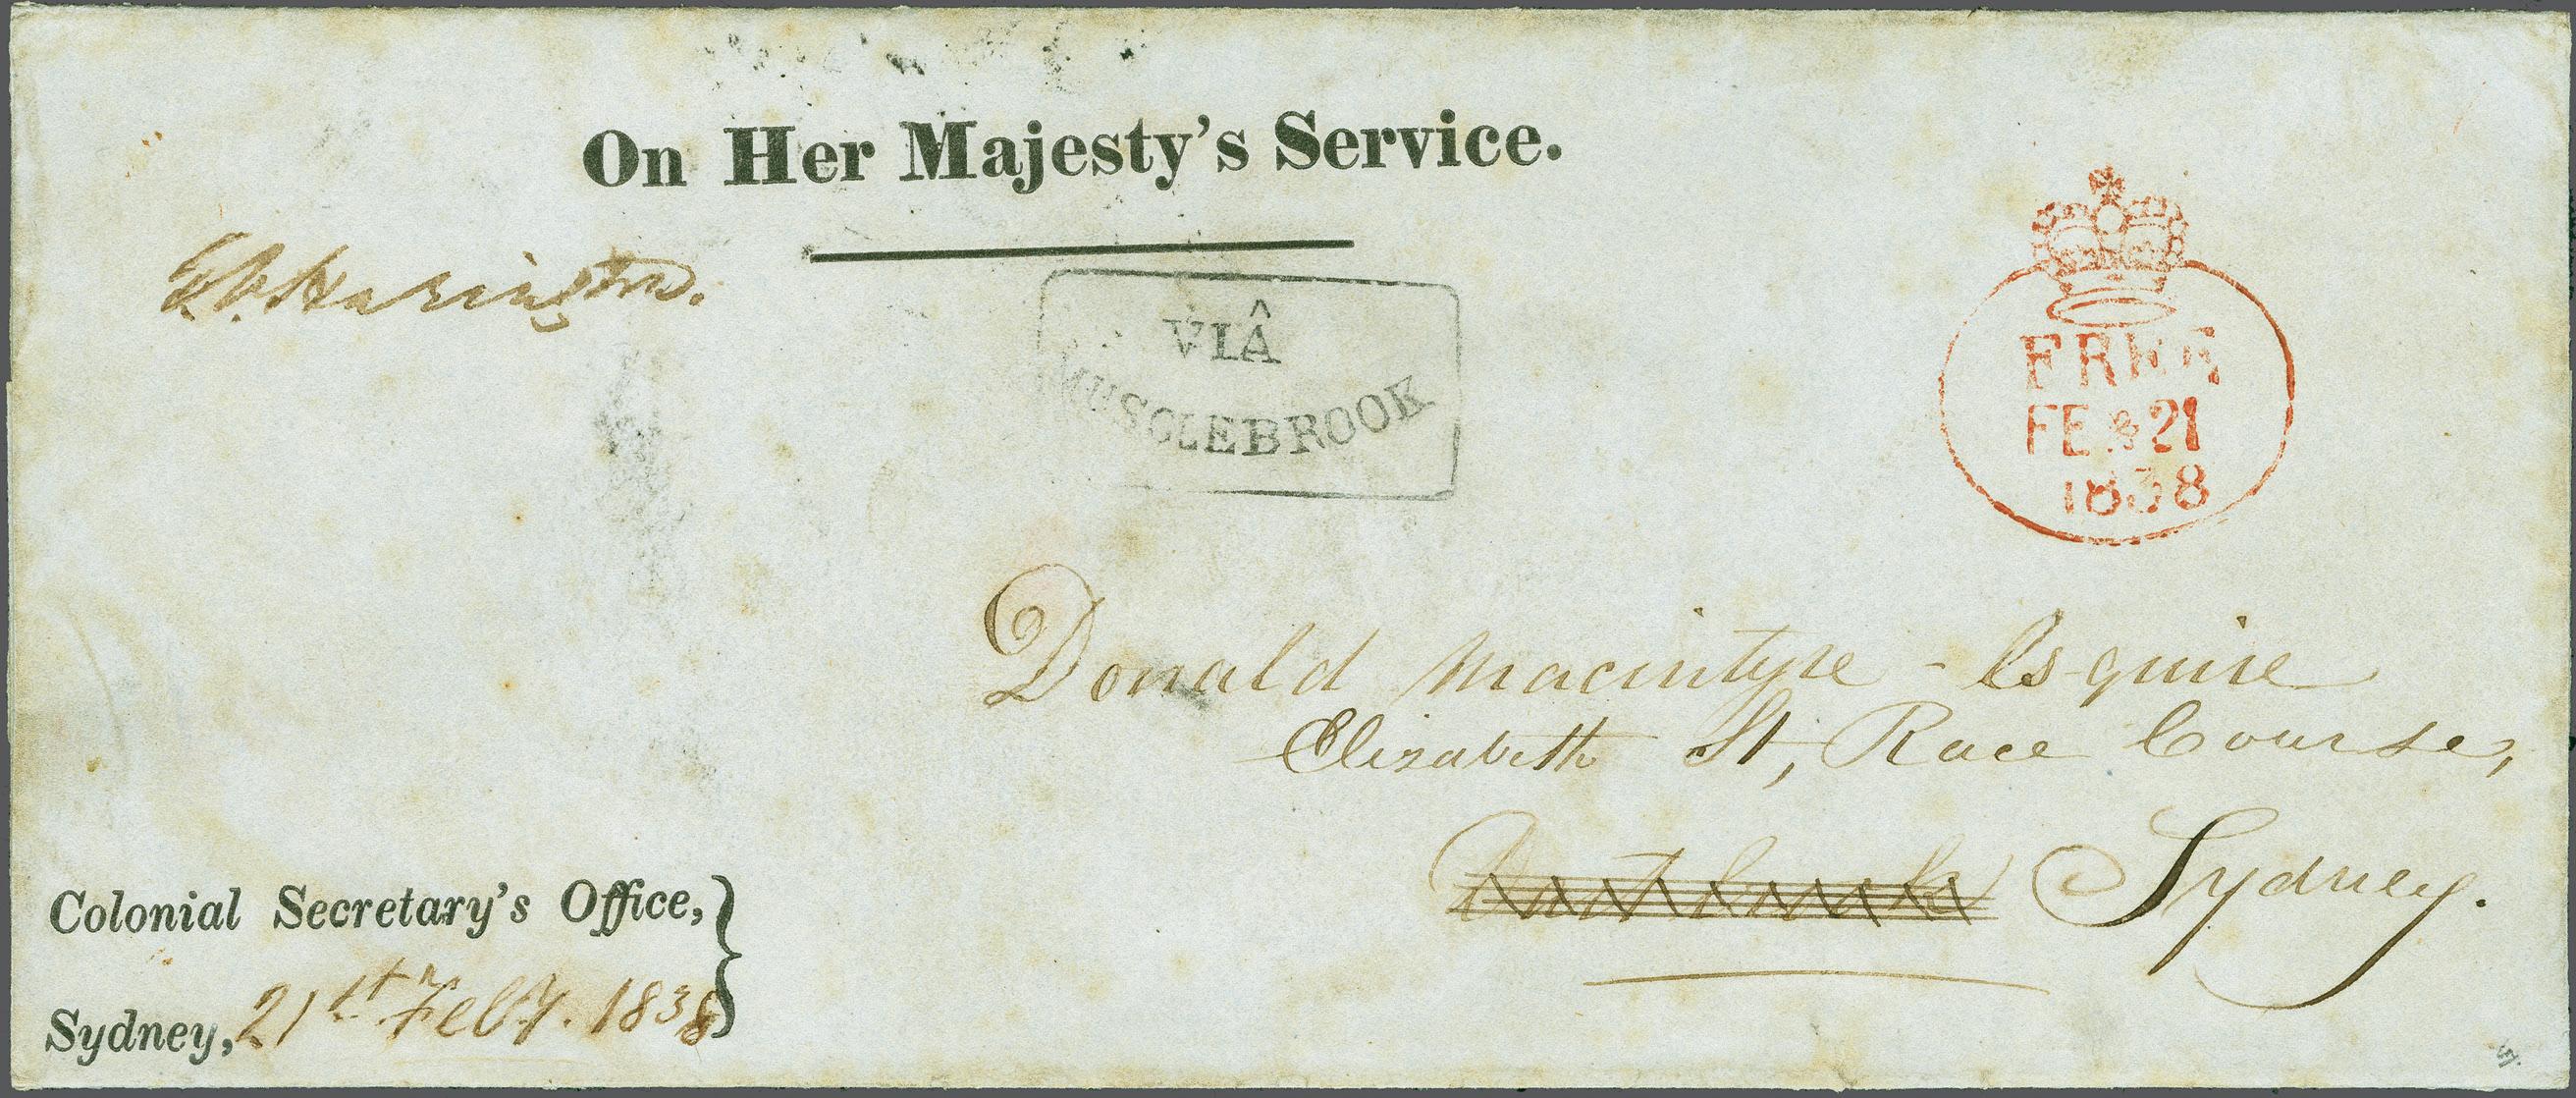 On Her Majesty's Service.
Harington.
VIÂ
MUSCLEBROOK
FREE
FE 21
1838
Donald Macintyre - Esquire
Elizabeth St, Race Course,
Sydney.
Colonial Secretary's Office,
Sydney, 21st Feby. 1838